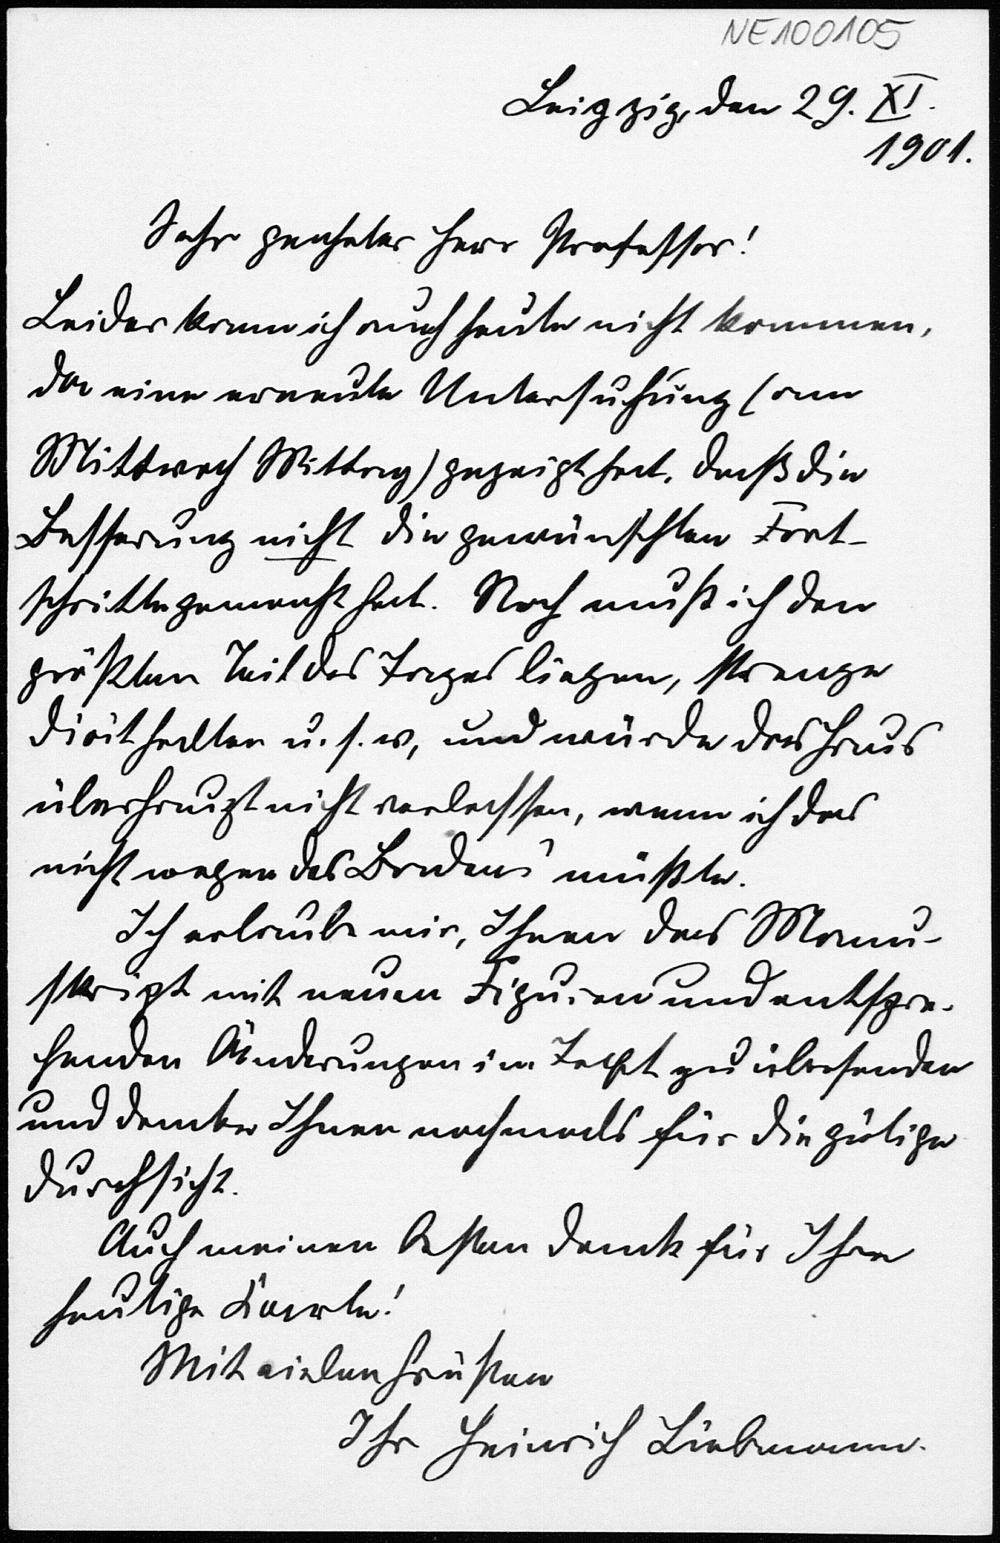 NE100105
Leipzig, den 29. XI.
1901.
Sehr geehrter Herr Professor!
Leider kann ich auch heute nicht kommen,
da eine erneute Untersuchung (am
Mittwoch Mittag) gezeigt hat, daß die
Besserung nicht die gewünschten Fort-
schritte gemacht hat. Noch muß ich den
größten Teil des Tages liegen, strenge
Diät halten u. s. w, und würde das Haus
überhaupt nicht verlassen, wenn ich das
nicht wegen des Badens müßte.
Ich erlaube mir, Ihnen das Manu-
skript mit neuen Figuren und entspre-
chenden Änderungen im Text zu übersenden
und danke Ihnen nochmals für die gütige
Durchsicht.
Auch meinen besten Dank für Ihre
heutige Karte!
Mit vielen Grüßen
Ihr Heinrich Liebmann.